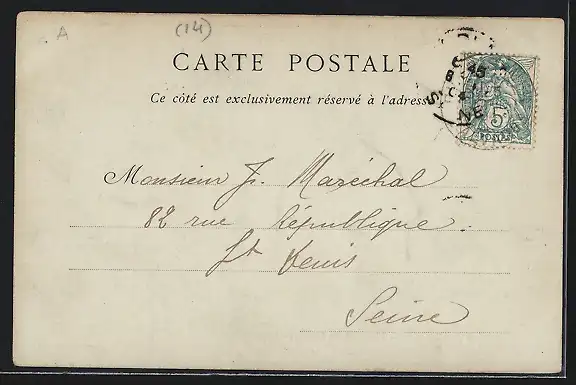 A
(14)
CARTE POSTALE
Ce côté est exclusivement réservé à l'adresse
5
POSTES
Monsieur J. Maréchal
82 rue République.
St Denis
Seine